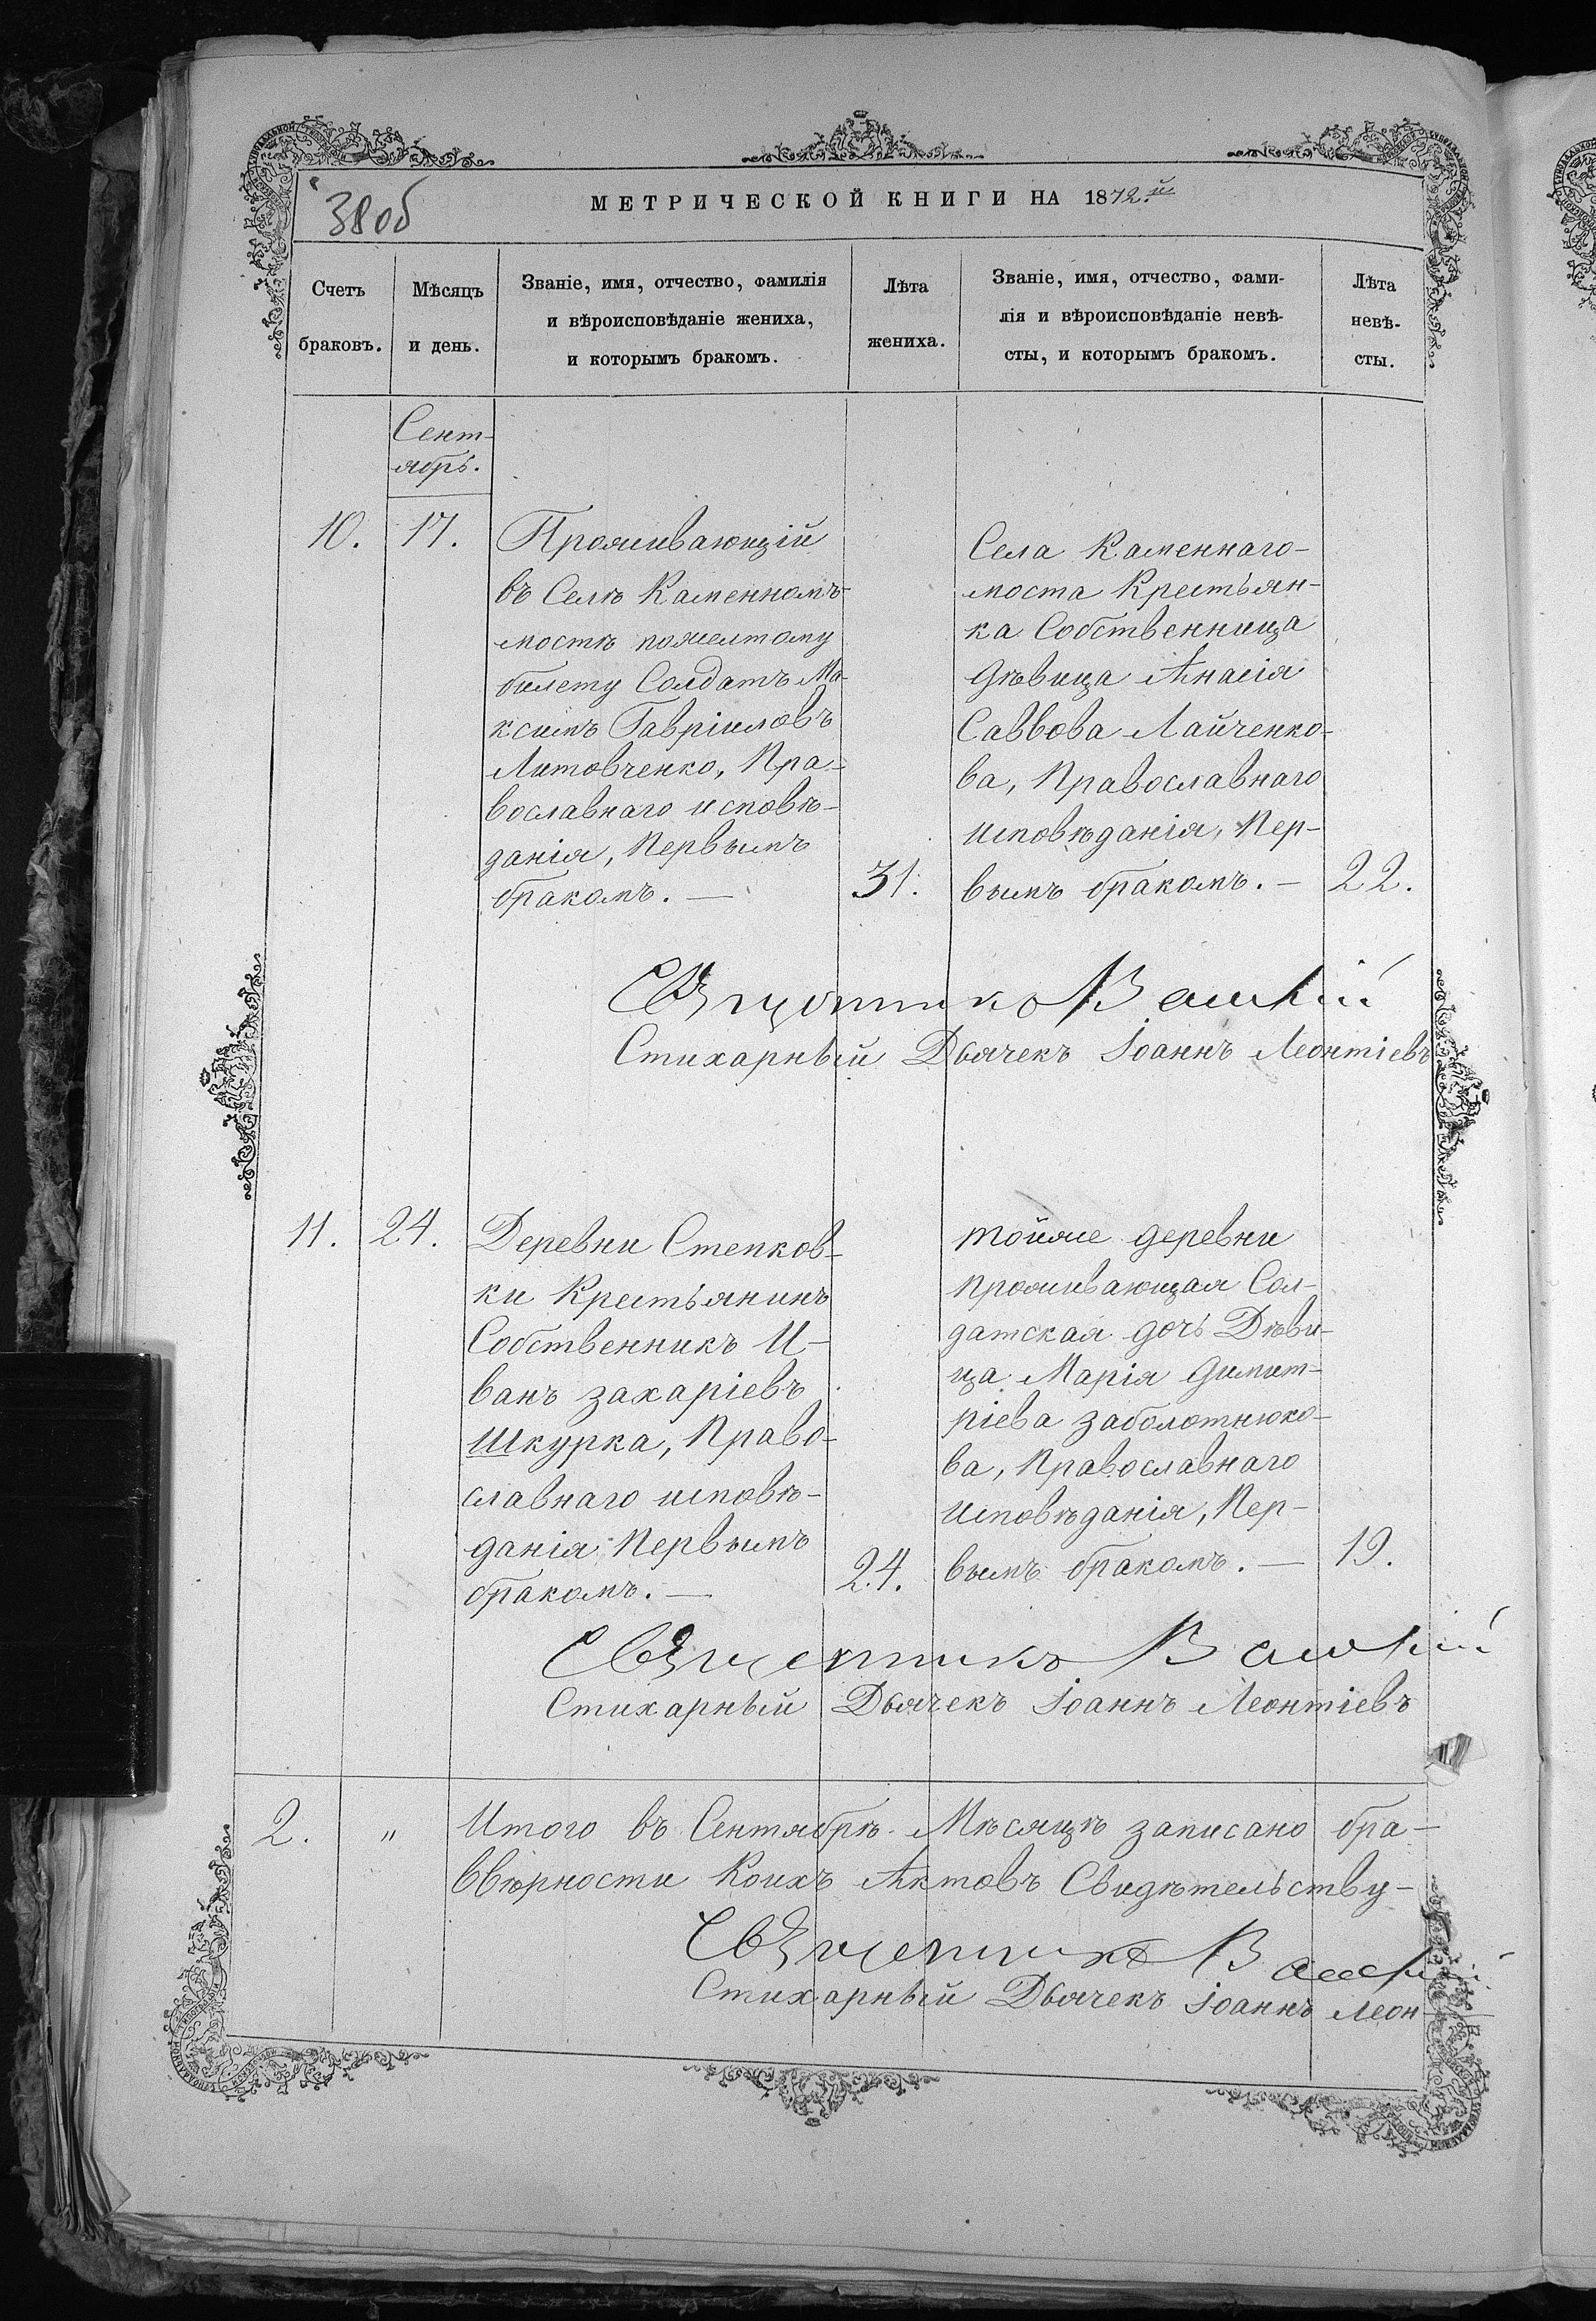 38об
МЕТРИЧЕСКОЙ КНИГИ НА 1872.й
Счетъ
браковъ.
Мѣсяцъ
и день.
Званіе, имя, отчество, фамилія
и вѣроисповѣданіе жениха,
и которымъ бракомъ.
Лѣта
жениха.
Званіе, имя, отчество, фами-
лія и вѣроисповѣданіе невѣ-
сты, и которымъ бракомъ.
Лѣта
невѣ-
сты.
Сент-
ябрь.
10.
17.
Проживающій
въ Селѣ Каменномъ-
мостѣ пожелтому
билету Солдатъ Ма-
ксимъ Гавріиловъ
Литовченко, Пра-
вославнаго исповѣ-
данія, Первымъ
бракомъ. —
31.
Села Каменнаго-
моста Крестьян-
ка Собственница
дѣвица Анасія
Саввова Лайченко-
ва, Православнаго
исповѣданія, Пер-
вымъ бракомъ. —
22.
Священникъ
Стихарный Дьячекъ Іоаннъ Леонтіевъ
11.
24.
Деревни Степков-
ки Крестьянинъ
Собственникъ И-
ванъ захаріевъ
Шкурка, Право-
славнаго исповѣ-
данія Первымъ
бракомъ. —
24.
тойже деревни
проживающая Сол-
датская дочь Дѣви-
ца Марія димит-
ріева заболотнюко-
ва, Православнаго
исповѣданія, Пер-
вымъ бракомъ. —
19.
Священникъ
Стихарный Дьячекъ Іоаннъ Леонтіевъ
2.
"
Итого въ Сентябрѣ Мѣсяцѣ записано бра-
ввѣрности Коихъ Актовъ Свидѣтельству-
Священникъ
Стихарный Дьячекъ Іоаннъ Леон